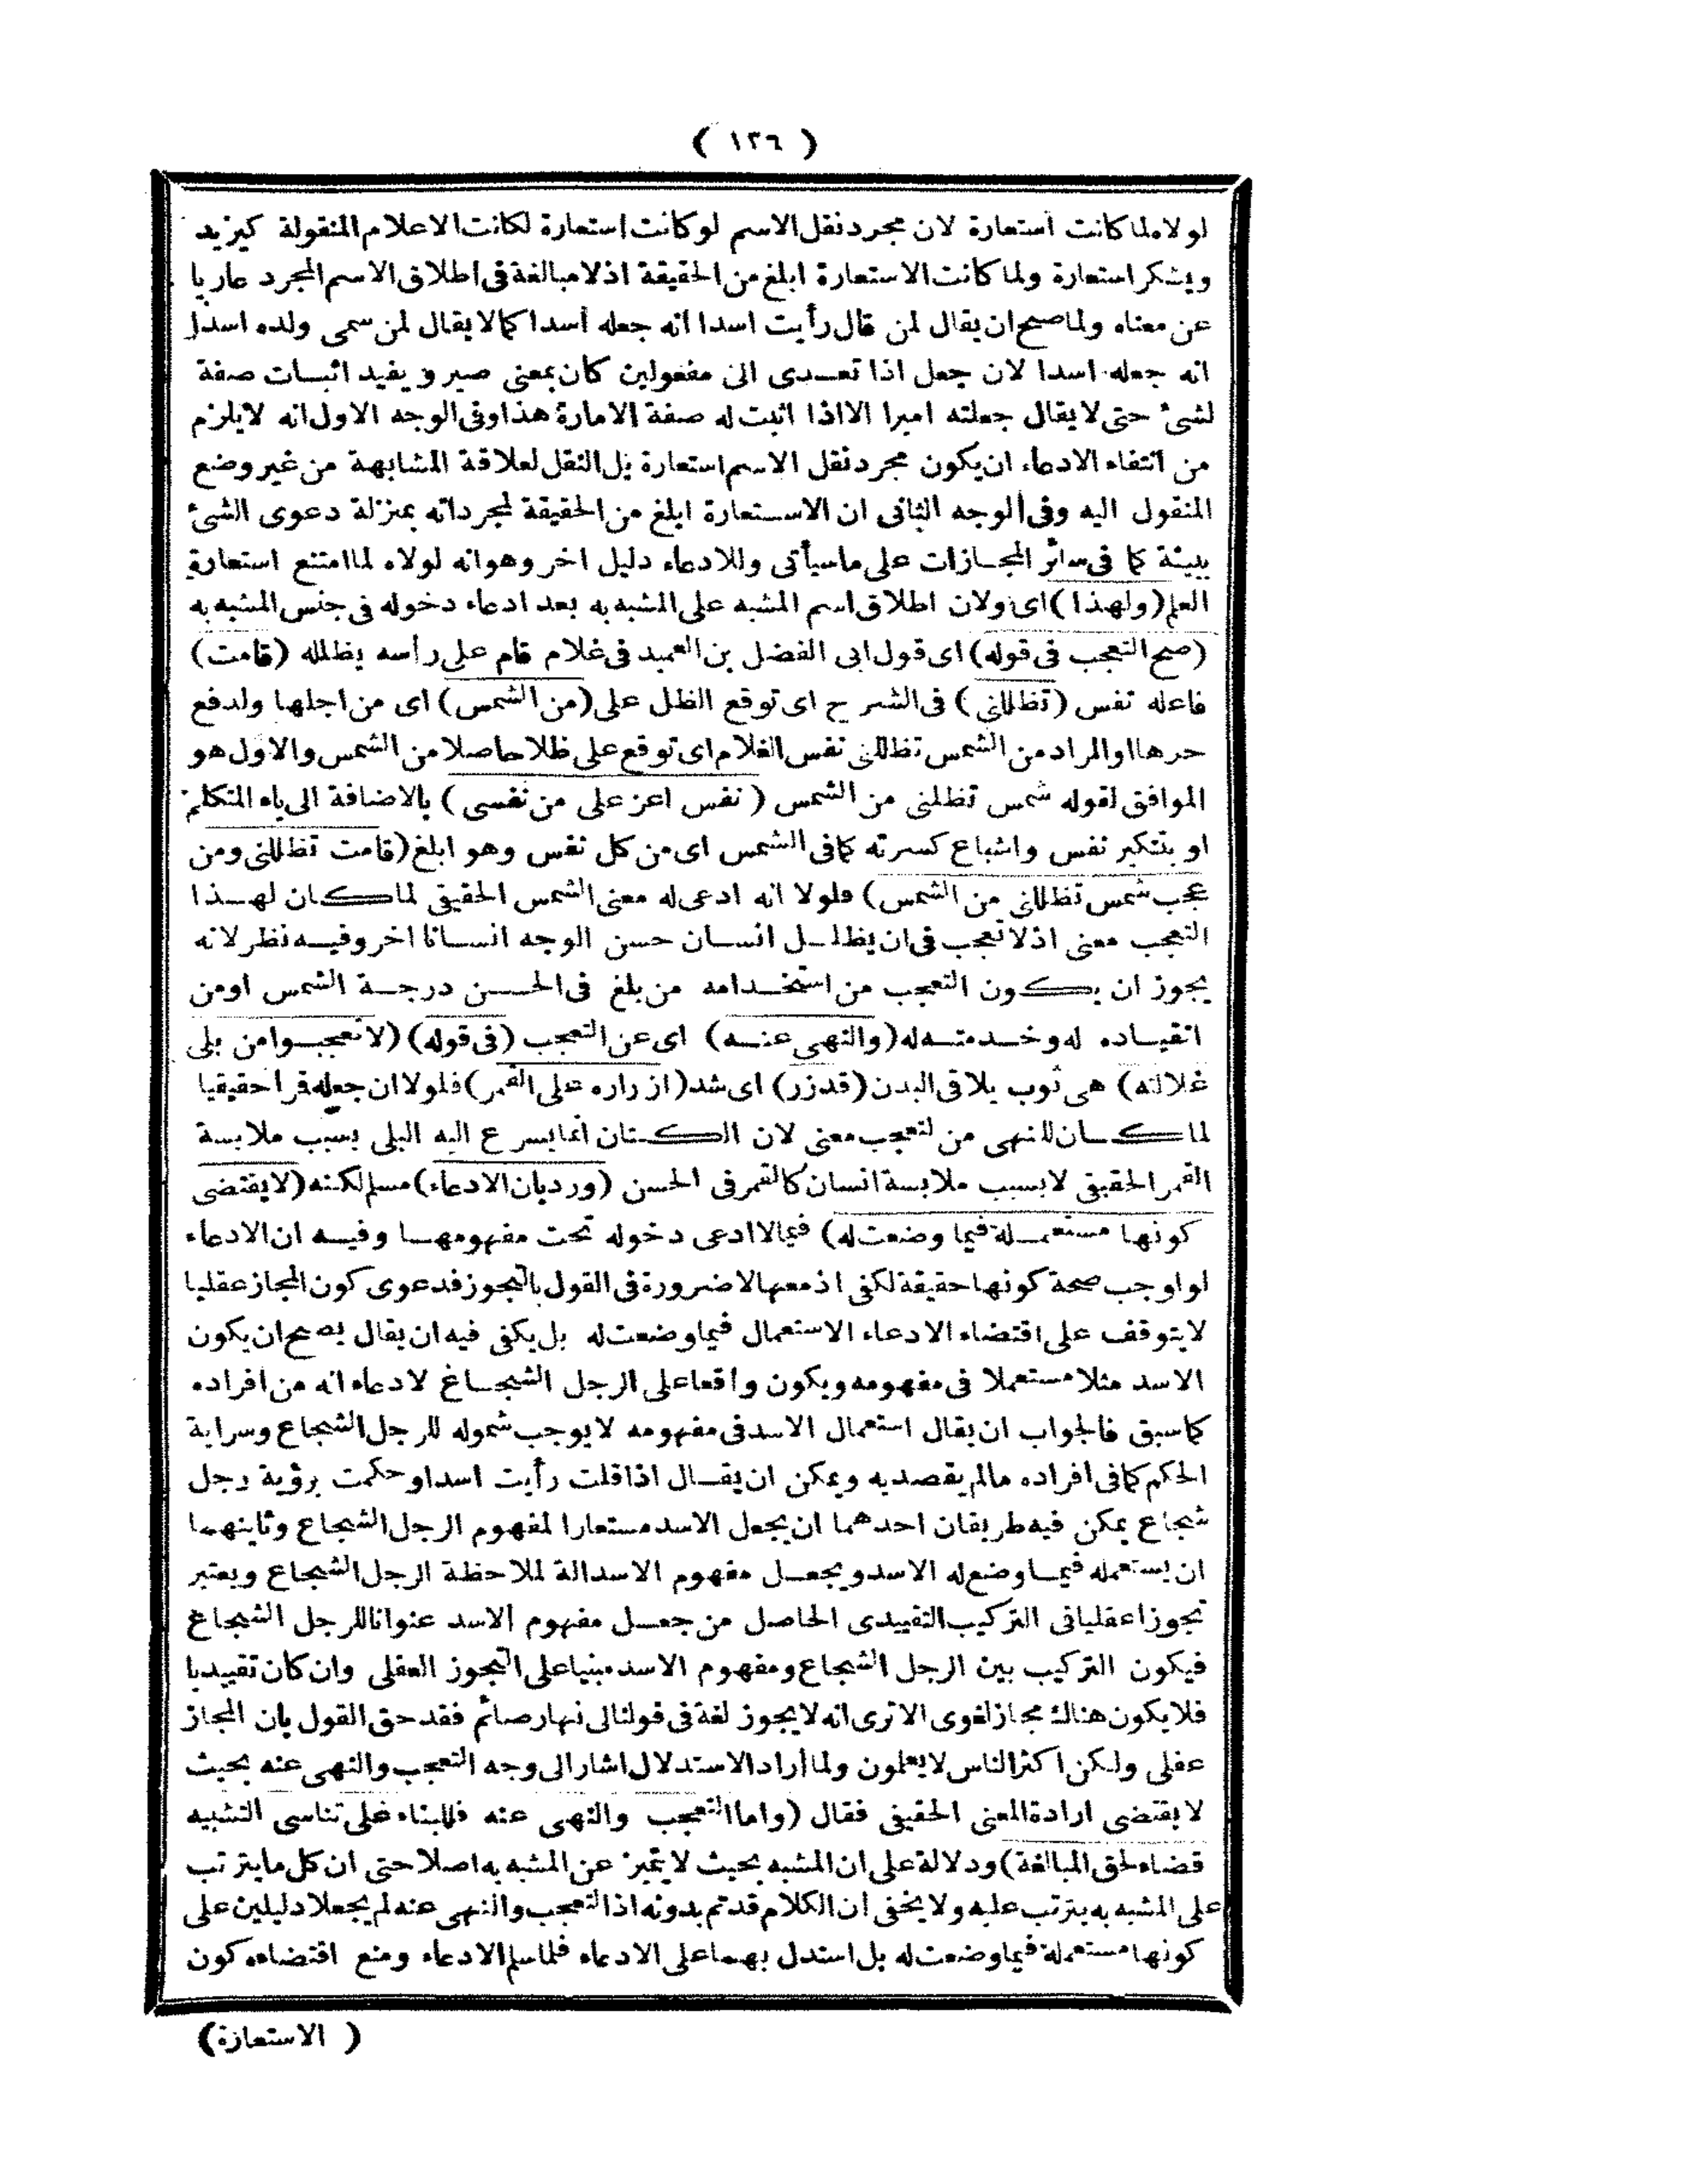 ( ١٢٦ )
لولاه لما كانت استعارة لان مجرد نقل الاسم لو كانت استعارة لكانت الاعلام المنقولة كيزيد
ويشكر استعارة ولما كانت الاستعارة ابلغ من الحقيقة اذ لا مبالغة فى اطلاق الاسم المجرد عاريا
عن معناه ولما صح ان يقال لمن قال رأيت اسدا انه جعله أسدا كما لا يقال لمن سمى ولده اسدا
انه جعله اسدا لان جعل اذا تعدى الى مفعولين كان بمعنى صير و يفيد اثبات صفة
لشئ حتى لا يقال جعلته اميرا الا اذا اثبت له صفة الامارة هذا وفى الوجه الاول انه لا يلزم
من انتفاء الادعاء ان يكون مجرد نقل الاسم استعارة بل النقل لعلاقة المشابهة من غير وضع
المنقول اليه وفى الوجه الثانى ان الاستعارة ابلغ من الحقيقة لمجرد انه بمنزلة دعوى الشئ
ببينة كما فى سائر المجازات على ما سيأتى وللادعاء دليل اخر وهو انه لولاه لما امتنع استعارة
العلم (ولهذا) اى ولان اطلاق اسم المشبه على المشبه به بعد ادعاء دخوله فى جنس المشبه به
(صح التعجب فى قوله) اى قول ابى الفضل بن العميد فى غلام قام على رأسه يظلله (قامت)
فاعله نفس (تظللنى) فى الشرح اى توقع الظل على (من الشمس) اى من اجلها ولدفع
حرها او المراد من الشمس تظللنى نفس الغلام اى توقع على ظلا حاصلا من الشمس والاول هو
الموافق لقوله شمس تظللنى من الشمس (نفس اعز على من نفسى) بالاضافة الى ياء المتكلم
او بتنكير نفس واشباع كسرته كما فى الشمس اى من كل نفس وهو ابلغ (قامت تظللنى ومن
عجب شمس تظللنى من الشمس) فلولا انه ادعى له معنى الشمس الحقيقى لما كان لهذا
التعجب معنى اذ لا تعجب فى ان يظلل انسان حسن الوجه انسانا اخر وفيه نظر لانه
يجوز ان يكون التعجب من استخدامه من بلغ فى الحسن درجة الشمس او من
انقياده له وخدمته له (والنهى عنه) اى عن التعجب (فى قوله) (لا تعجبوا من بلى
غلالته) هى ثوب يلاقى البدن (قد زر) اى شد (ازراره على القمر) فلولا ان جعله قمرا حقيقيا
لما كان للنهى من لتعجب معنى لان الكتان انما يسرع اليه البلى بسبب ملابسة
القمر الحقيقى لا بسبب ملابسة انسان كالقمر فى الحسن (ورد بان الادعاء) مسلم لكنه (لا يقتضى
كونها مستعملة فيما وضعت له) فيما لا ادعى دخوله تحت مفهومها وفيه ان الادعاء
لو اوجب صحة كونها حقيقة لكفى اذ معها لا ضرورة فى القول بالتجوز فدعوى كون المجاز عقليا
لا يتوقف على اقتضاء الادعاء الاستعمال فيما وضعت له بل يكفى فيه ان يقال يصح ان يكون
الاسد مثلا مستعملا فى مفهومه ويكون واقعا على الرجل الشجاع لادعاء انه من افراده
كما سبق فالجواب ان يقال استعمال الاسد فى مفهومه لا يوجب شموله للرجل الشجاع وسراية
الحكم كما فى افراده مالم يقصد به ويمكن ان يقال اذا قلت رأيت اسدا وحكمت برؤية رجل
شجاع يمكن فيه طريقان احدهما ان يجعل الاسد مستعارا لمفهوم الرجل الشجاع وثانيهما
ان يستعمله فيما وضع له الاسد ويجعل مفهوم الاسد الة لملاحظة الرجل الشجاع ويعتبر
تجوزا عقليا فى التركيب التقييدى الحاصل من جعل مفهوم الاسد عنوانا للرجل الشجاع
فيكون التركيب بين الرجل الشجاع ومفهوم الاسد مبنيا على التجوز العقلى وان كان تقييديا
فلا يكون هناك مجاز لغوى الا ترى انه لا يجوز لغة فى قولنا لى نهار صائم فقد حق القول بان المجاز
عقلى ولكن اكثر الناس لا يعلمون ولما أراد الاستدلال اشار الى وجه التعجب والنهى عنه بحيث
لا يقتضى ارادة المعنى الحقيقى فقال (واما التعجب والنهى عنه فللبناء على تناسى التشبيه
قضاء لحق المبالغة) ودلالة على ان المشبه بحيث لا يتميز عن المشبه به اصلا حتى ان كل ما يترتب
على المشبه به يترتب عليه ولا يخفى ان الكلام قد تم بدونه اذ التعجب والنهى عنه لم يجعلا دليلين على
كونها مستعملة فيما وضعت له بل استدل بهما على الادعاء فلما سلم الادعاء ومنع اقتضاءه كون
( الاستعارة)